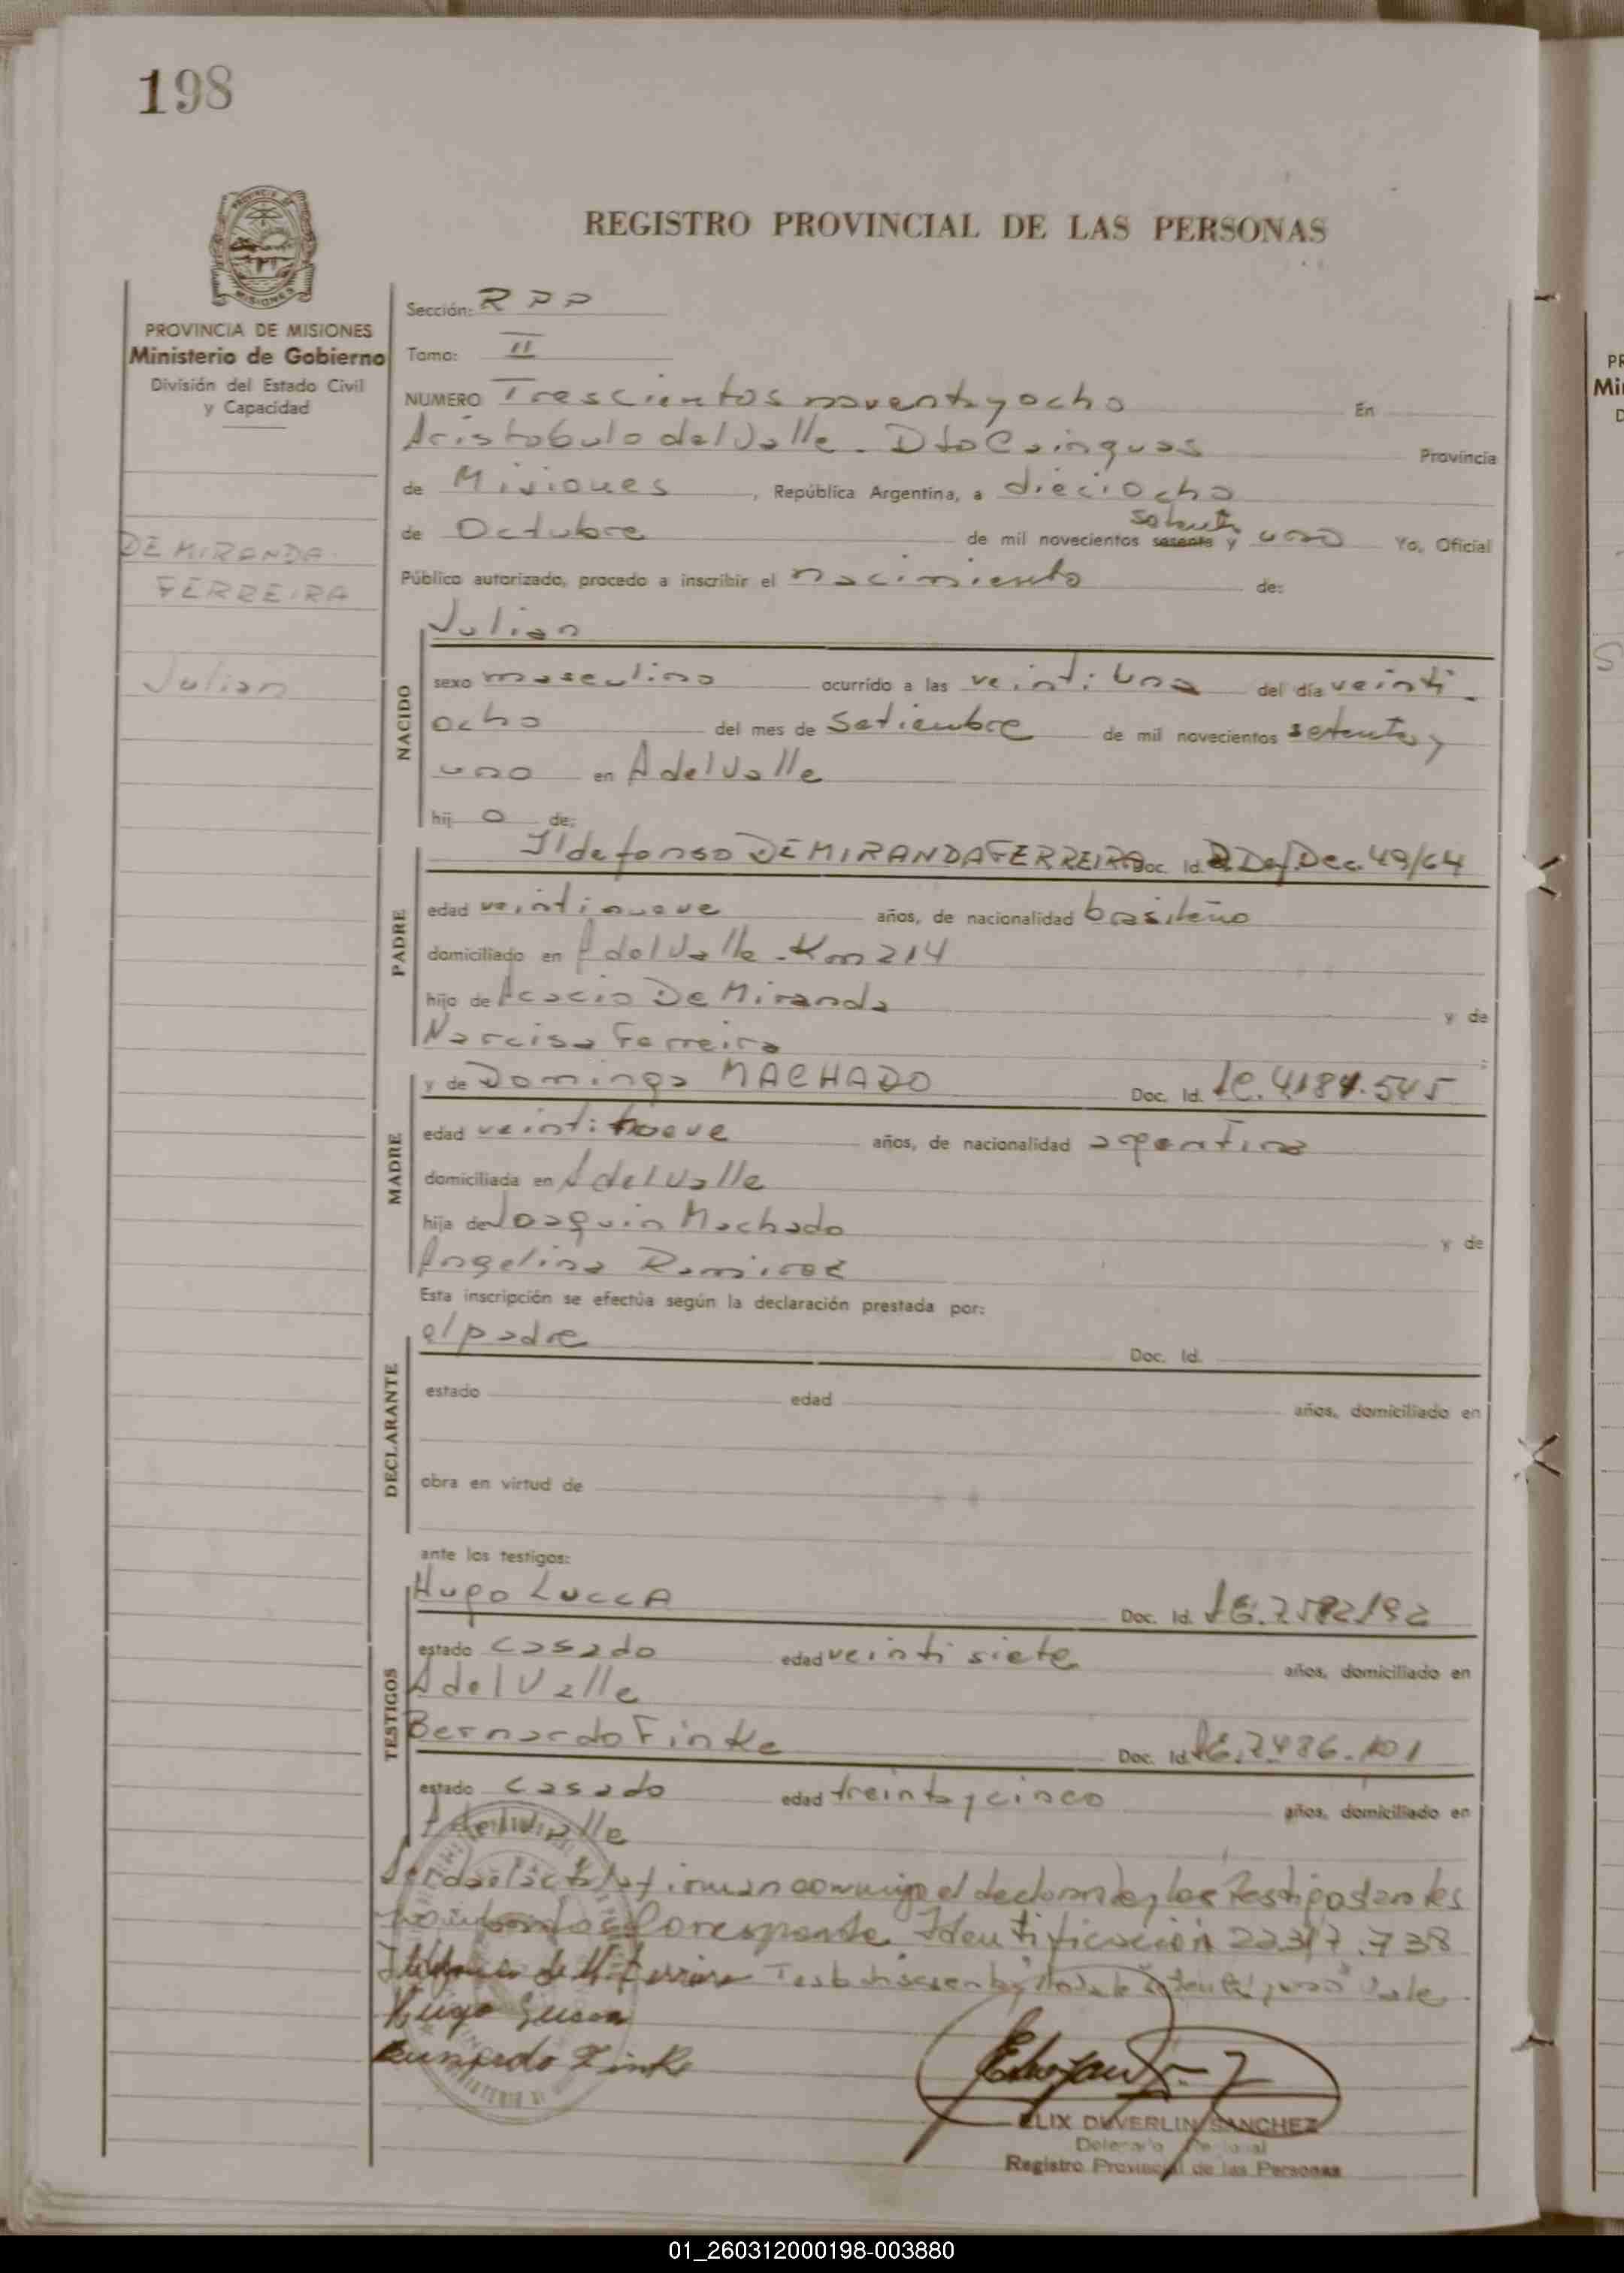 198
REGISTRO PROVINCIAL DE LAS PERSONAS
PROVINCIA DE MISIONES
Ministerio de Gobierno
División del Estado Civil
y Capacidad
DE MIRANDA
FERREIRA
Julian
Sección: R P P
Tomo: II
NUMERO Trescientos noventa y ocho En
Aristobulo del Valle. Dto Cainguas Provincia
de Misiones, República Argentina, a dieciocho
setenta
de Octubre de mil novecientos sesenta y uno Yo, Oficial
Público autorizado, procedo a inscribir el nacimiento de:
NACIDO
Julian
sexo masculino ocurrido a las veinti una del día veinti
ocho del mes de Setiembre de mil novecientos setenta y
uno en A del Valle
hij o de:
PADRE
Ildefonso DE MIRANDA FERREIRA Doc. Id. Dec. 49/64
edad veintinueve años, de nacionalidad brasileño
domiciliado en A del Valle - Km 214
hijo de Acacio De Miranda y de
Narcisa Ferreira
MADRE
y de Dominga MACHADO Doc. Id.
edad veintinueve años, de nacionalidad argentina
domiciliada en A del Valle
hija de Joaquin Machado y de
Angelina Ramirez
Esta inscripción se efectúa según la declaración prestada por:
DECLARANTE
el padre Doc. Id.
estado edad años, domiciliado en
obra en virtud de
ante los testigos:
TESTIGOS
Hugo LUCCA Doc. Id.
estado casado edad veinti siete años, domiciliado en
A del Valle
Bernardo Finke Doc. Id. 7.486.101
estado casado edad treinta y cinco años, domiciliado en
A del Valle
firman conmigo el declarante y los testigos
Coresponde Identificación 22.317.738
Vale
Bernardo Finke
ELIX DUVERLIN SANCHEZ
Delegado
Registro Provincial de las Personas
01_260312000198-003880